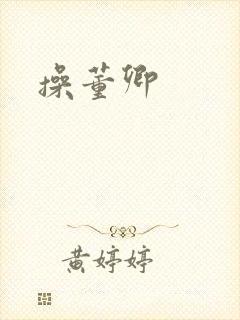 操董卿
黄婷婷